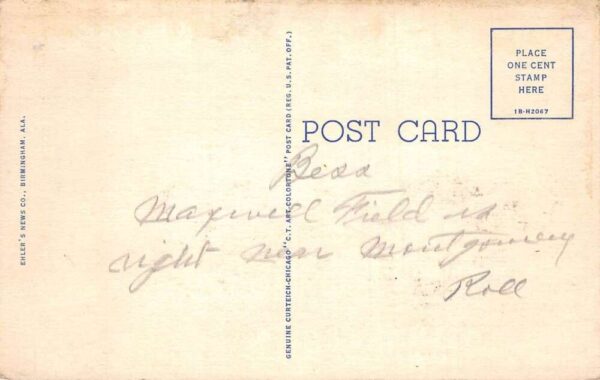 PLACE
ONE CENT
STAMP
HERE
1B-H2067
POST CARD
EHLER'S NEWS CO., BIRMINGHAM, ALA.
GENUINE CURTEICH-CHICAGO "C.T. ART-COLORTONE" POST CARD (REG. U.S. PAT. OFF.)
Bess
Maxwell Field is
right near Montgomery
Roll